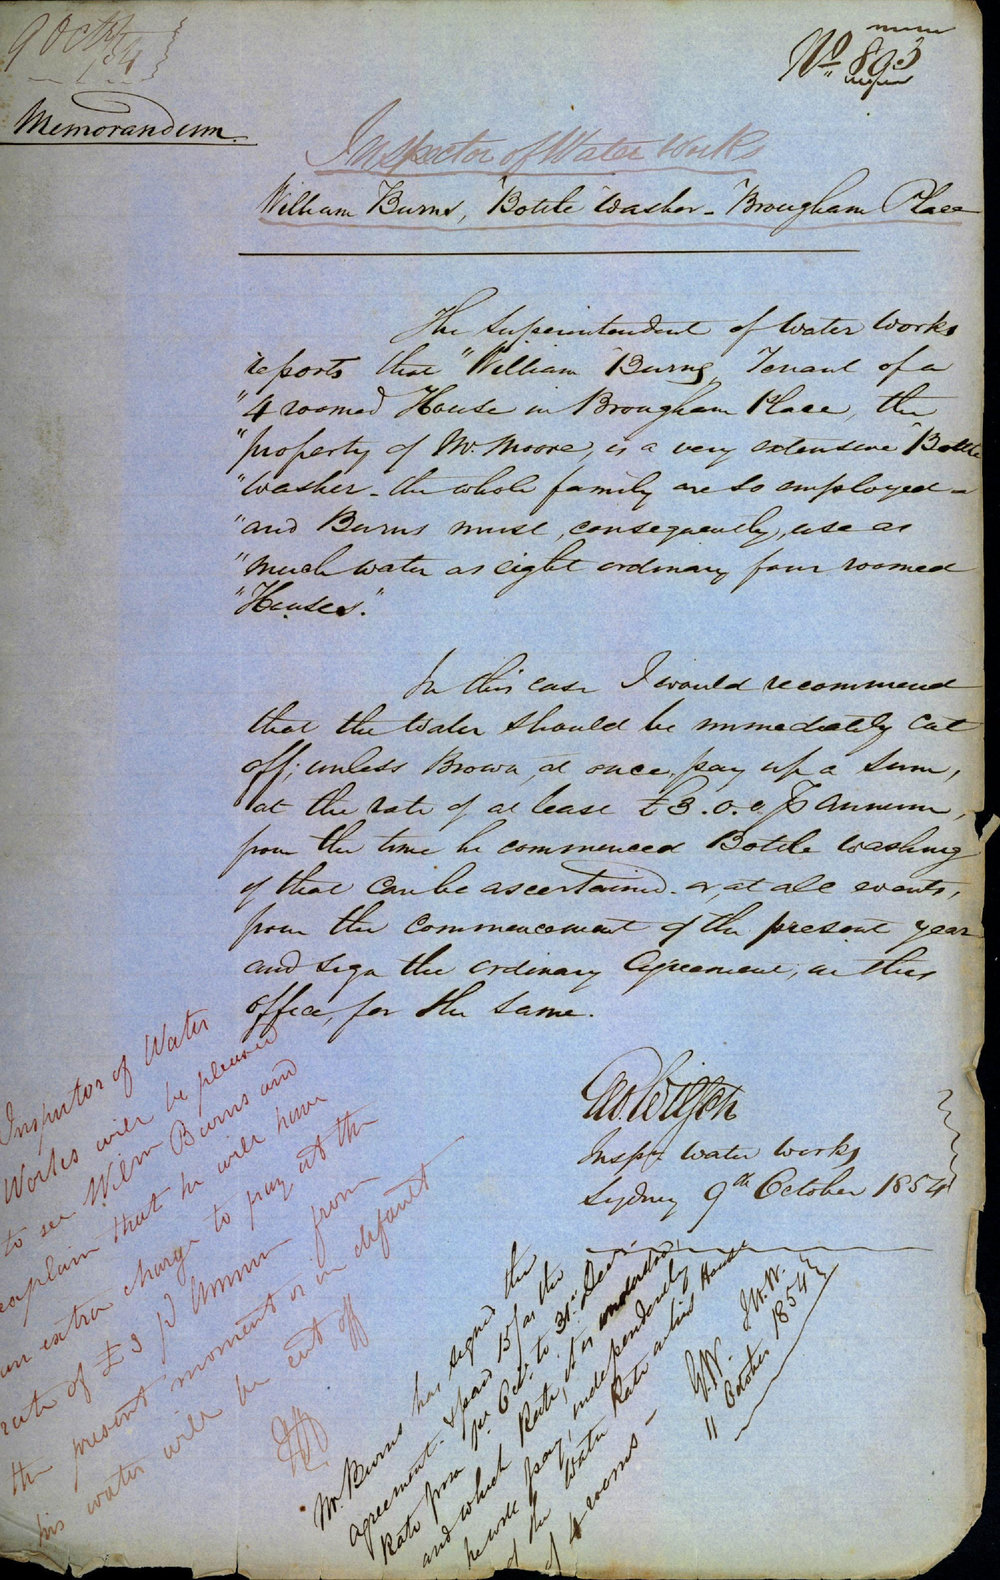 9 Oct /54
No 893
Memorandum.
Inspector of Water Works
William Burns, "Bottle Washer - Brougham Place
The Superintendent of Water Works
reports that "William Burns, Tenant of a
"4 roomed House in Brougham Place, the
"property of Mr. Moore, is a very extensive Bottle
"washer - the whole family are so employed -
"and Burns must, consequently, use as
"much water as eight ordinary four roomed
"Houses."
In this case I would recommend
that the Water should be immediately cut
off; unless Brown, at once, pay up a sum,
at the rate of at least £3.0.0 ⅌ Annum,
from the time he commenced Bottle washing
if that can be ascertained - or, at all events,
from the commencement of the present year
and sign the ordinary Agreement, in this
office, for the same.
Geo. Wilson
Inspr Water Works
Sydney 9th October 1854
Inspector of Water
Works will be pleased
to see Wilm Burns and
explain that he will have
an extra charge to pay at the
rate of £3 p Annum from
the present moment or in default
his water will be cut off
Mr. Burns has signed the
agreement - & paid 15/ as the
Rate from 1st Octr. to 31st Decr.
and which Rate, it is understood,
he will pay, independently
of the Water Rate on his House
of 4 rooms -
G.W.
11 October 1854